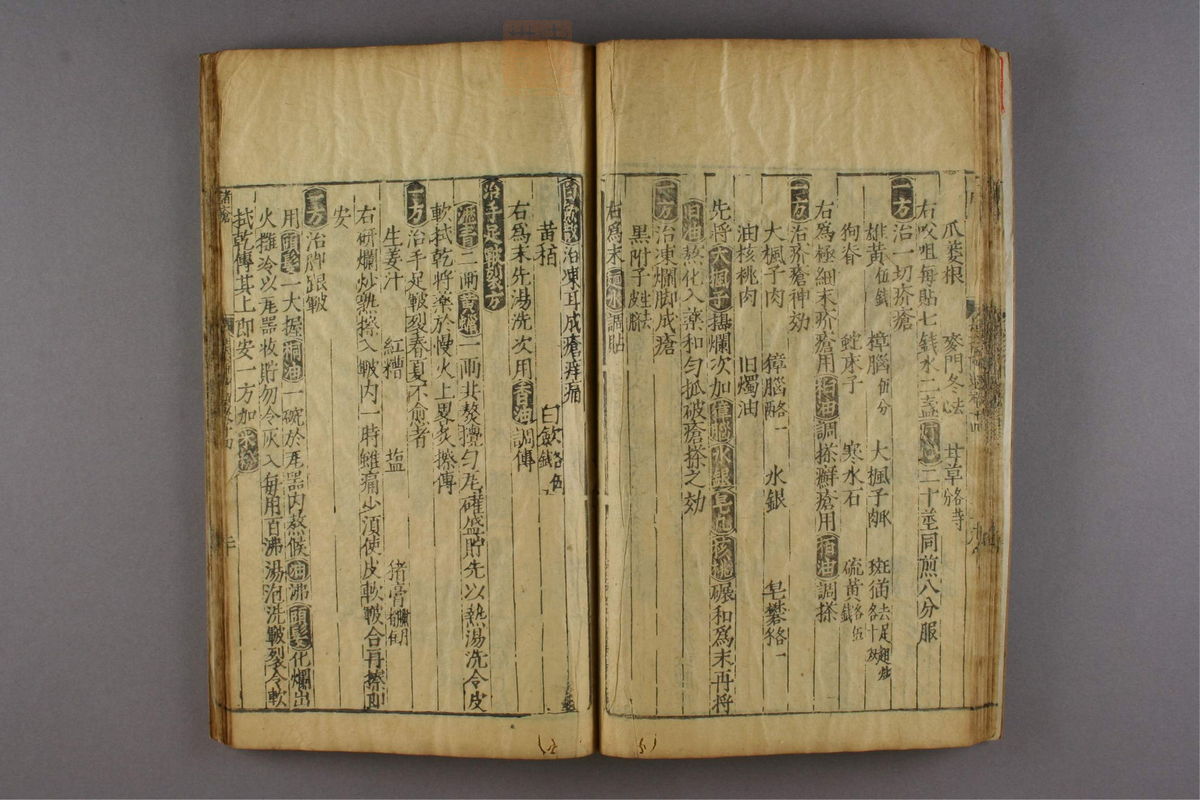 爪蔞根 麥門冬去心 甘草各等分
右㕮咀每貼七錢水二盞 二十莖同煎八分服
一方治一切疥瘡
雄黄伍錢 樟腦伍分 大楓子 斑猫去足翅炒各十
狗脊 蛇床子 寒水石 硫黄各伍錢
右爲極細末疥瘡用柏油調搽癬瘡用柏油調搽
一方治疥瘡神効
大楓子肉 獐腦 水銀 皂礬各一
油核桃肉 旧燭油
先將大楓子搗爛次加獐腦水銀皂礬核桃碾和爲末再将
旧油熬化入藥和匀抓破瘡搽之効
一方治凍爛脚成瘡
黒附子去皮臍
右爲末麺水調貼
白歛散治凍耳成瘡痒痛
黄栢 白歛各伍錢
右爲末先湯洗次用香油調傅
治手足皸裂方
瀝青二兩黄蠟二兩共熬攪匀瓦確盛貯先以熱湯洗令皮
軟拭乾將藥於慢火上畧炙擦傅
一方治手足皸裂春夏不愈者
生姜汁 紅糟 盐 猪膏臘月
右研爛炒熟擦入皸内一時雖痛少湏使皮軟皸合再擦即
安
一方治脚跟皸
用頭髮一大握桐油一碗於瓦器内熬候油沸頭髮化爛出
火攤冷以瓦器收貯勿令灰入每用百沸湯泡洗皸裂令軟
拭乾傅其上即安一方加水粉